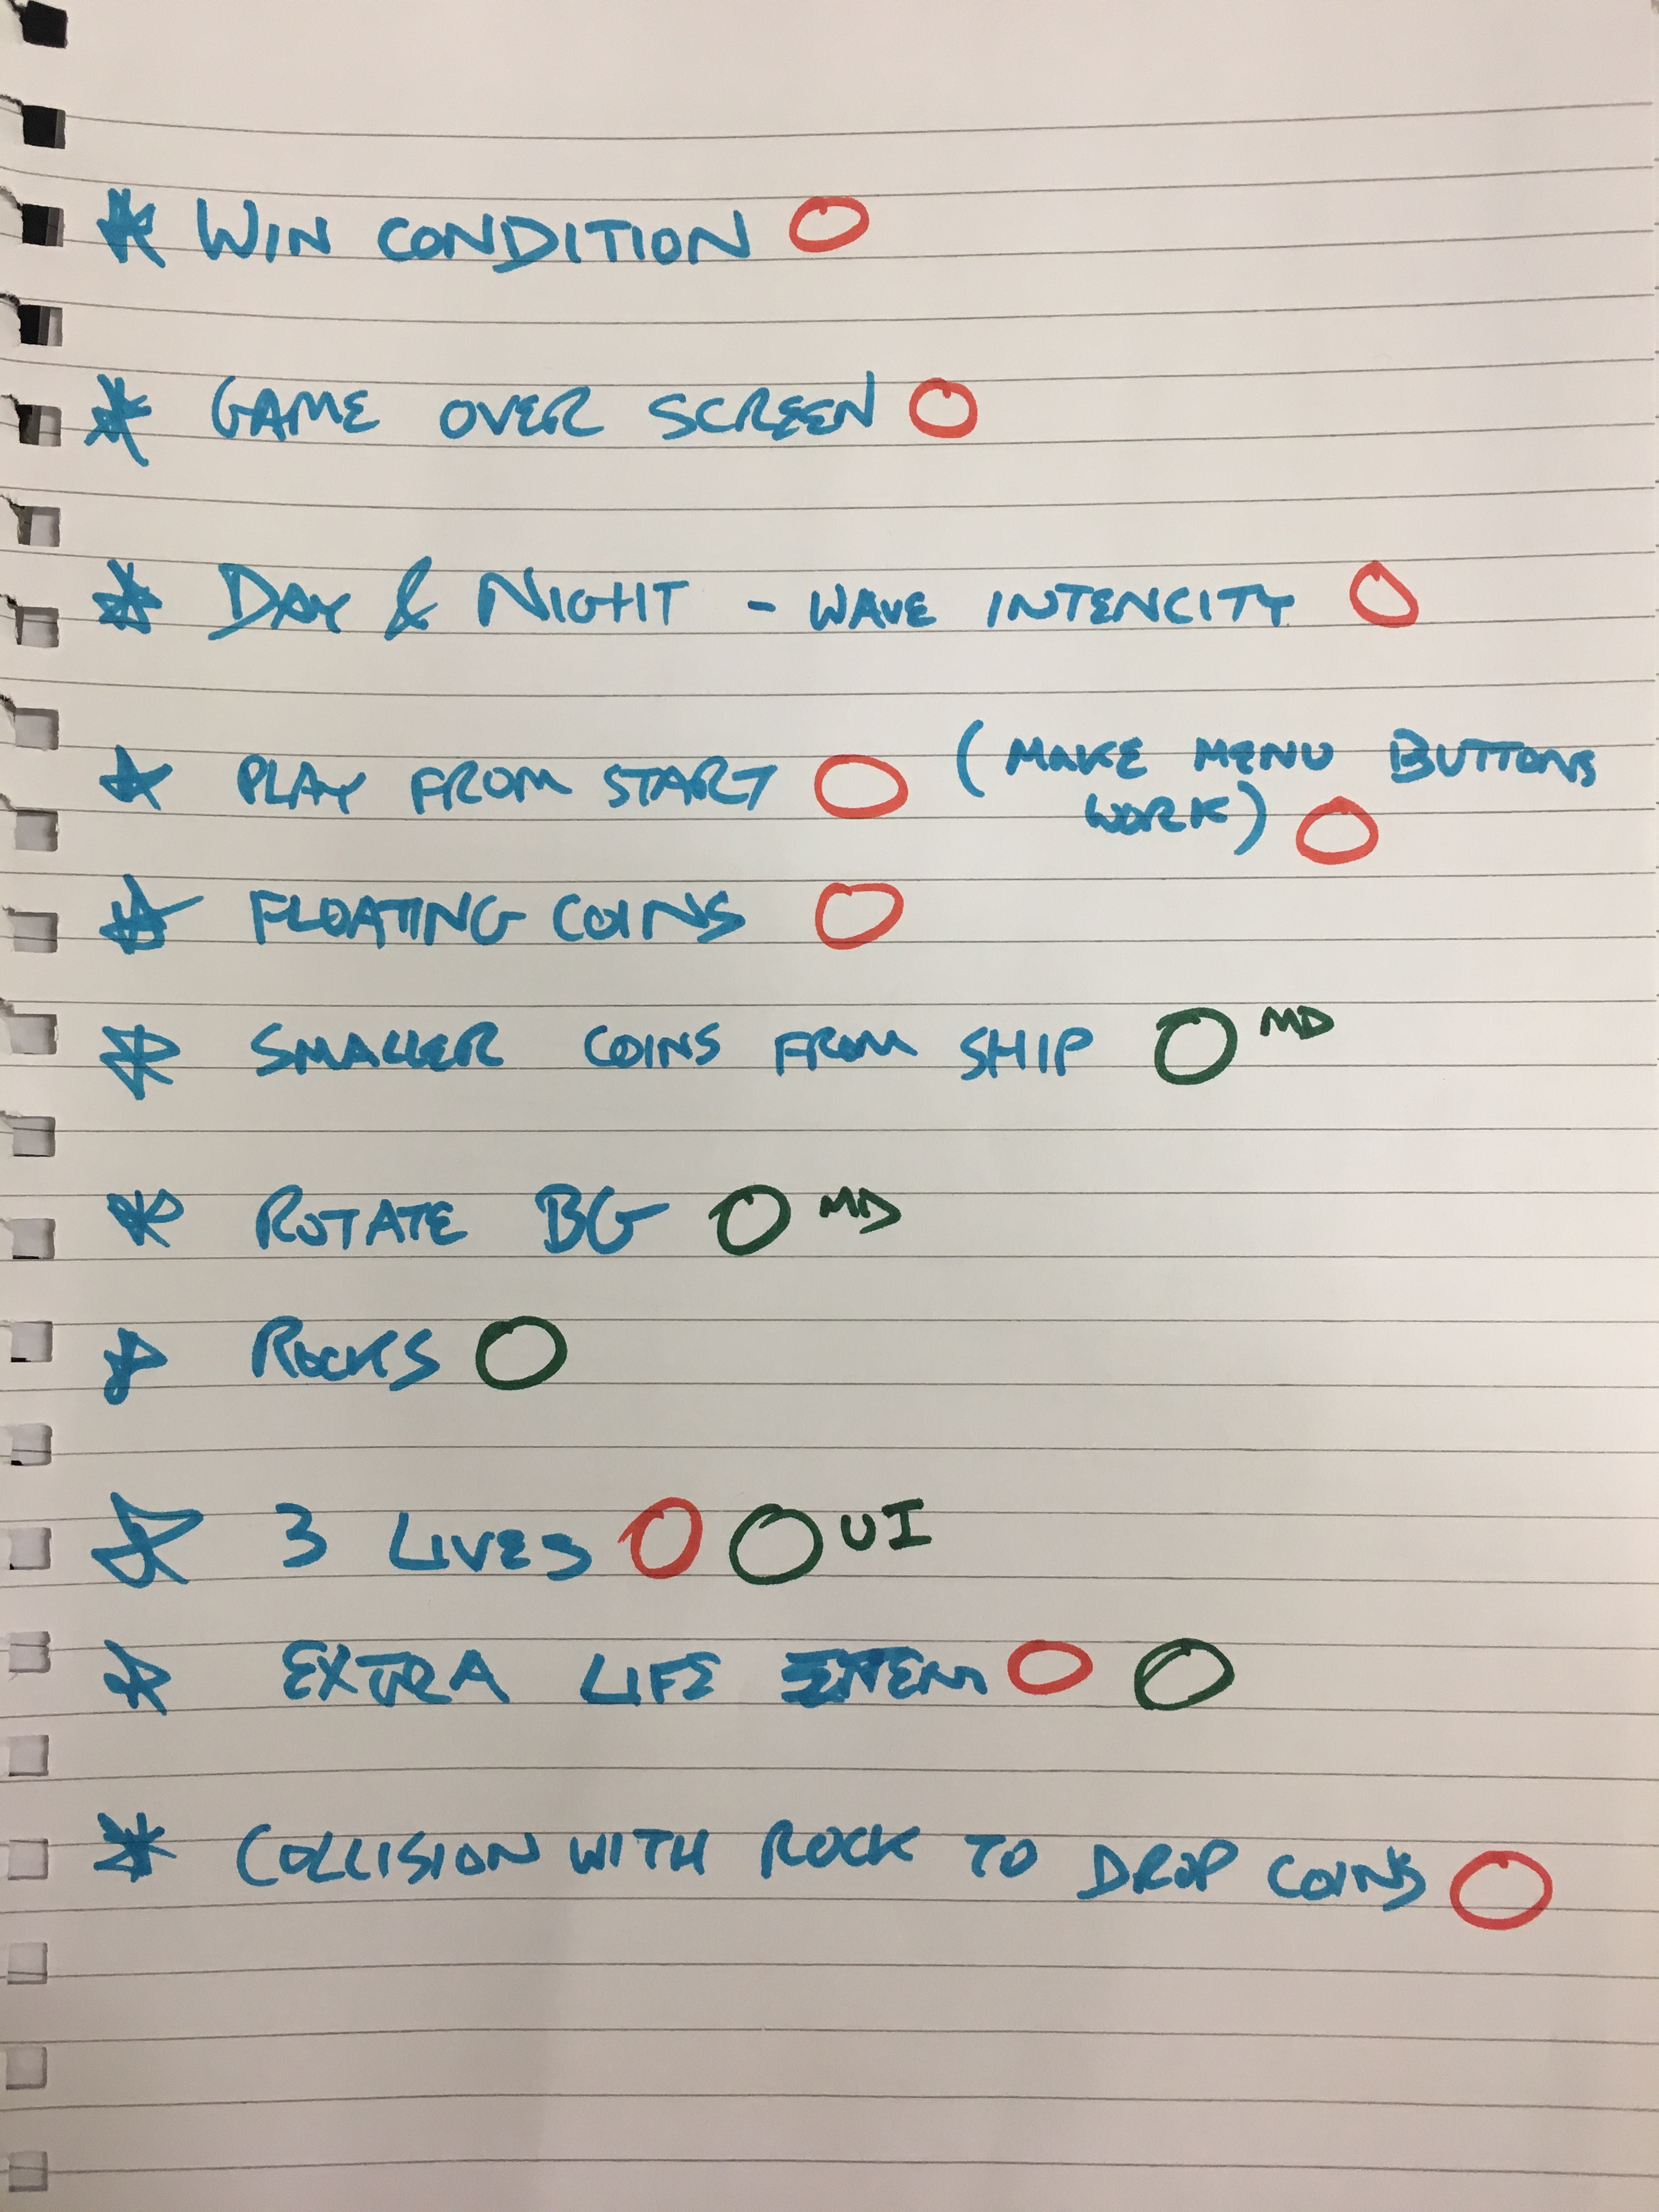 * WIN CONDITION
* GAME OVER SCREEN
* DAY & NIGHT - WAVE INTENCITY
* PLAY FROM START (MAKE MENU BUTTONS
WORK)
* FLOATING COINS
* SMALLER COINS FROM SHIP MD
* ROTATE BG MD
* ROCKS
* 3 LIVES UI
* EXTRA LIFE ITEM
* COLLISION WITH ROCK TO DROP COINS